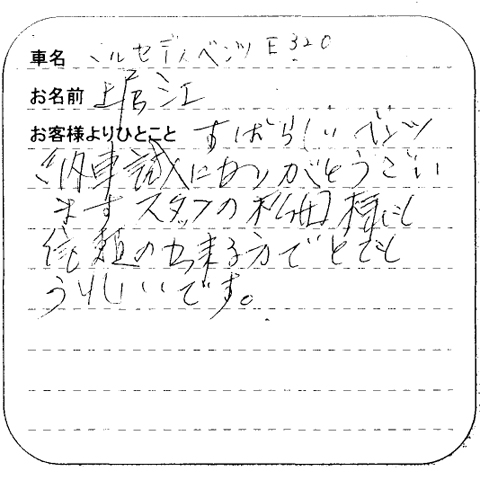 車名 メルセデスベンツ E320
お名前 堀江
お客様よりひとこと すばらしいベンツ
ご納車誠にありがとうござい
ますスタッフの松田様にも
信頼の出来る方でとても
うれしいです。